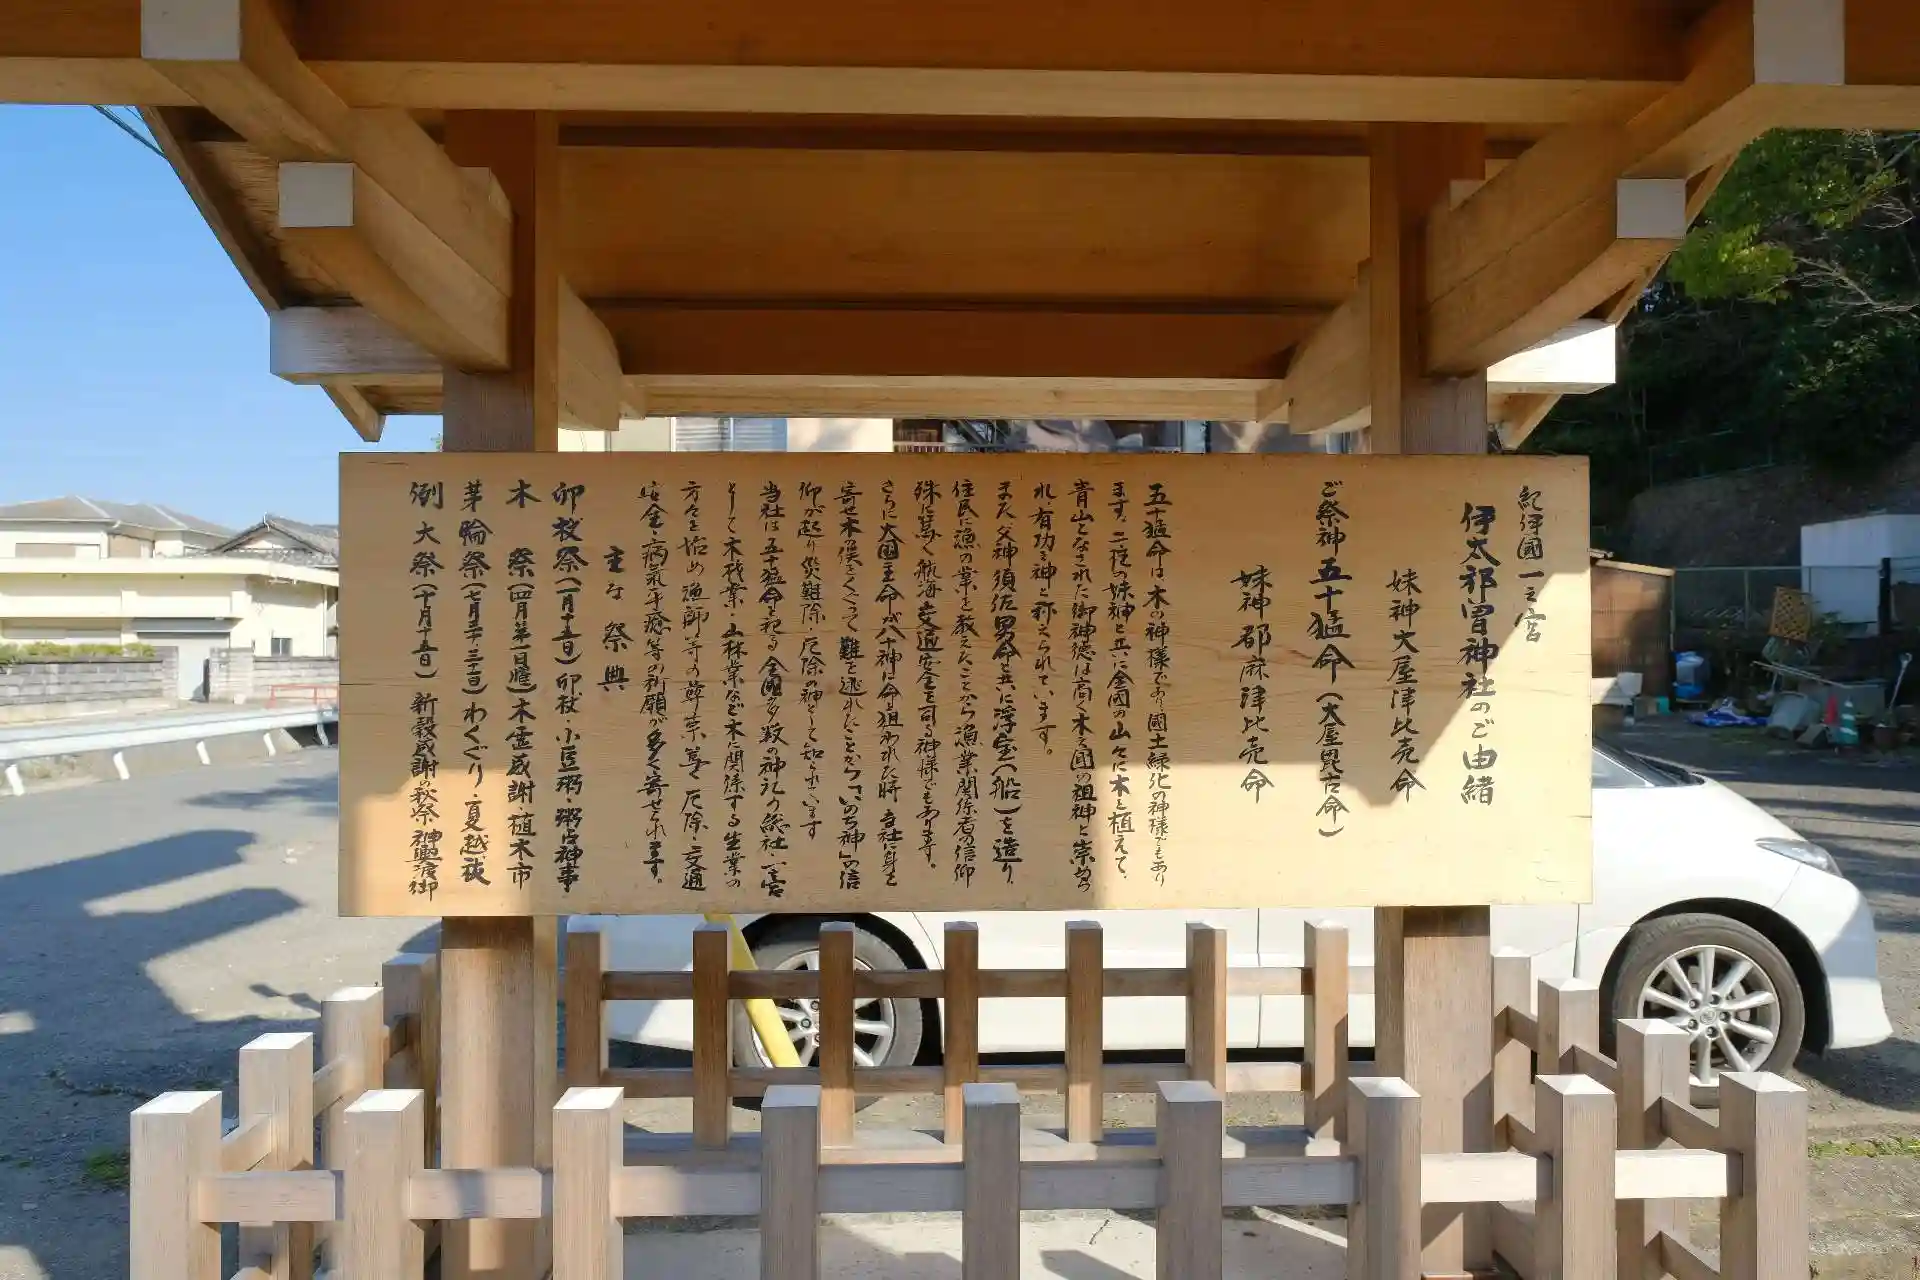 紀伊國一之宮
伊太祁曽神社のご由緒
妹神大屋津比売命
ご祭神五十猛命(大屋毘古命)
妹神都麻津比売命
五十猛命は木の神様であり國土緑化の神様でもあり
ます。二柱の妹神と共に全國の山々に木を植えて、
青山となされた御神徳は高く木の國の祖神と崇めら
れ有功の神と称えられています。
また父神須佐男命と共に浮宝(船)を造り、
住民に漁の業を教えたことから漁業関係者の信仰
殊に篤く航海・交通安全を司る神様でもあります。
さらに大国主命が八十神に命を狙われた時、当社に身を
寄せ木の俣をくぐって難を逃れたことから「いのち神」の信
仰が起り災難除・厄除の神として知られています
当社は五十猛命を祀る全國多数の神社の総社・一宮
として木材業・山林業など木に関係する生業の
方々を始め漁師等の尊崇篤く厄除・交通
安全・病氣平癒等の祈願が多く寄せられます。
主な祭典
卯杖祭(一月十五日)卯杖・小豆粥・粥占神事
木祭(四月第一日曜)木霊感謝・植木市
茅輪祭(七月三十・三十一日)わくぐり・夏越祓
例大祭(十月十五日)新穀感謝の秋祭 神輿渡御